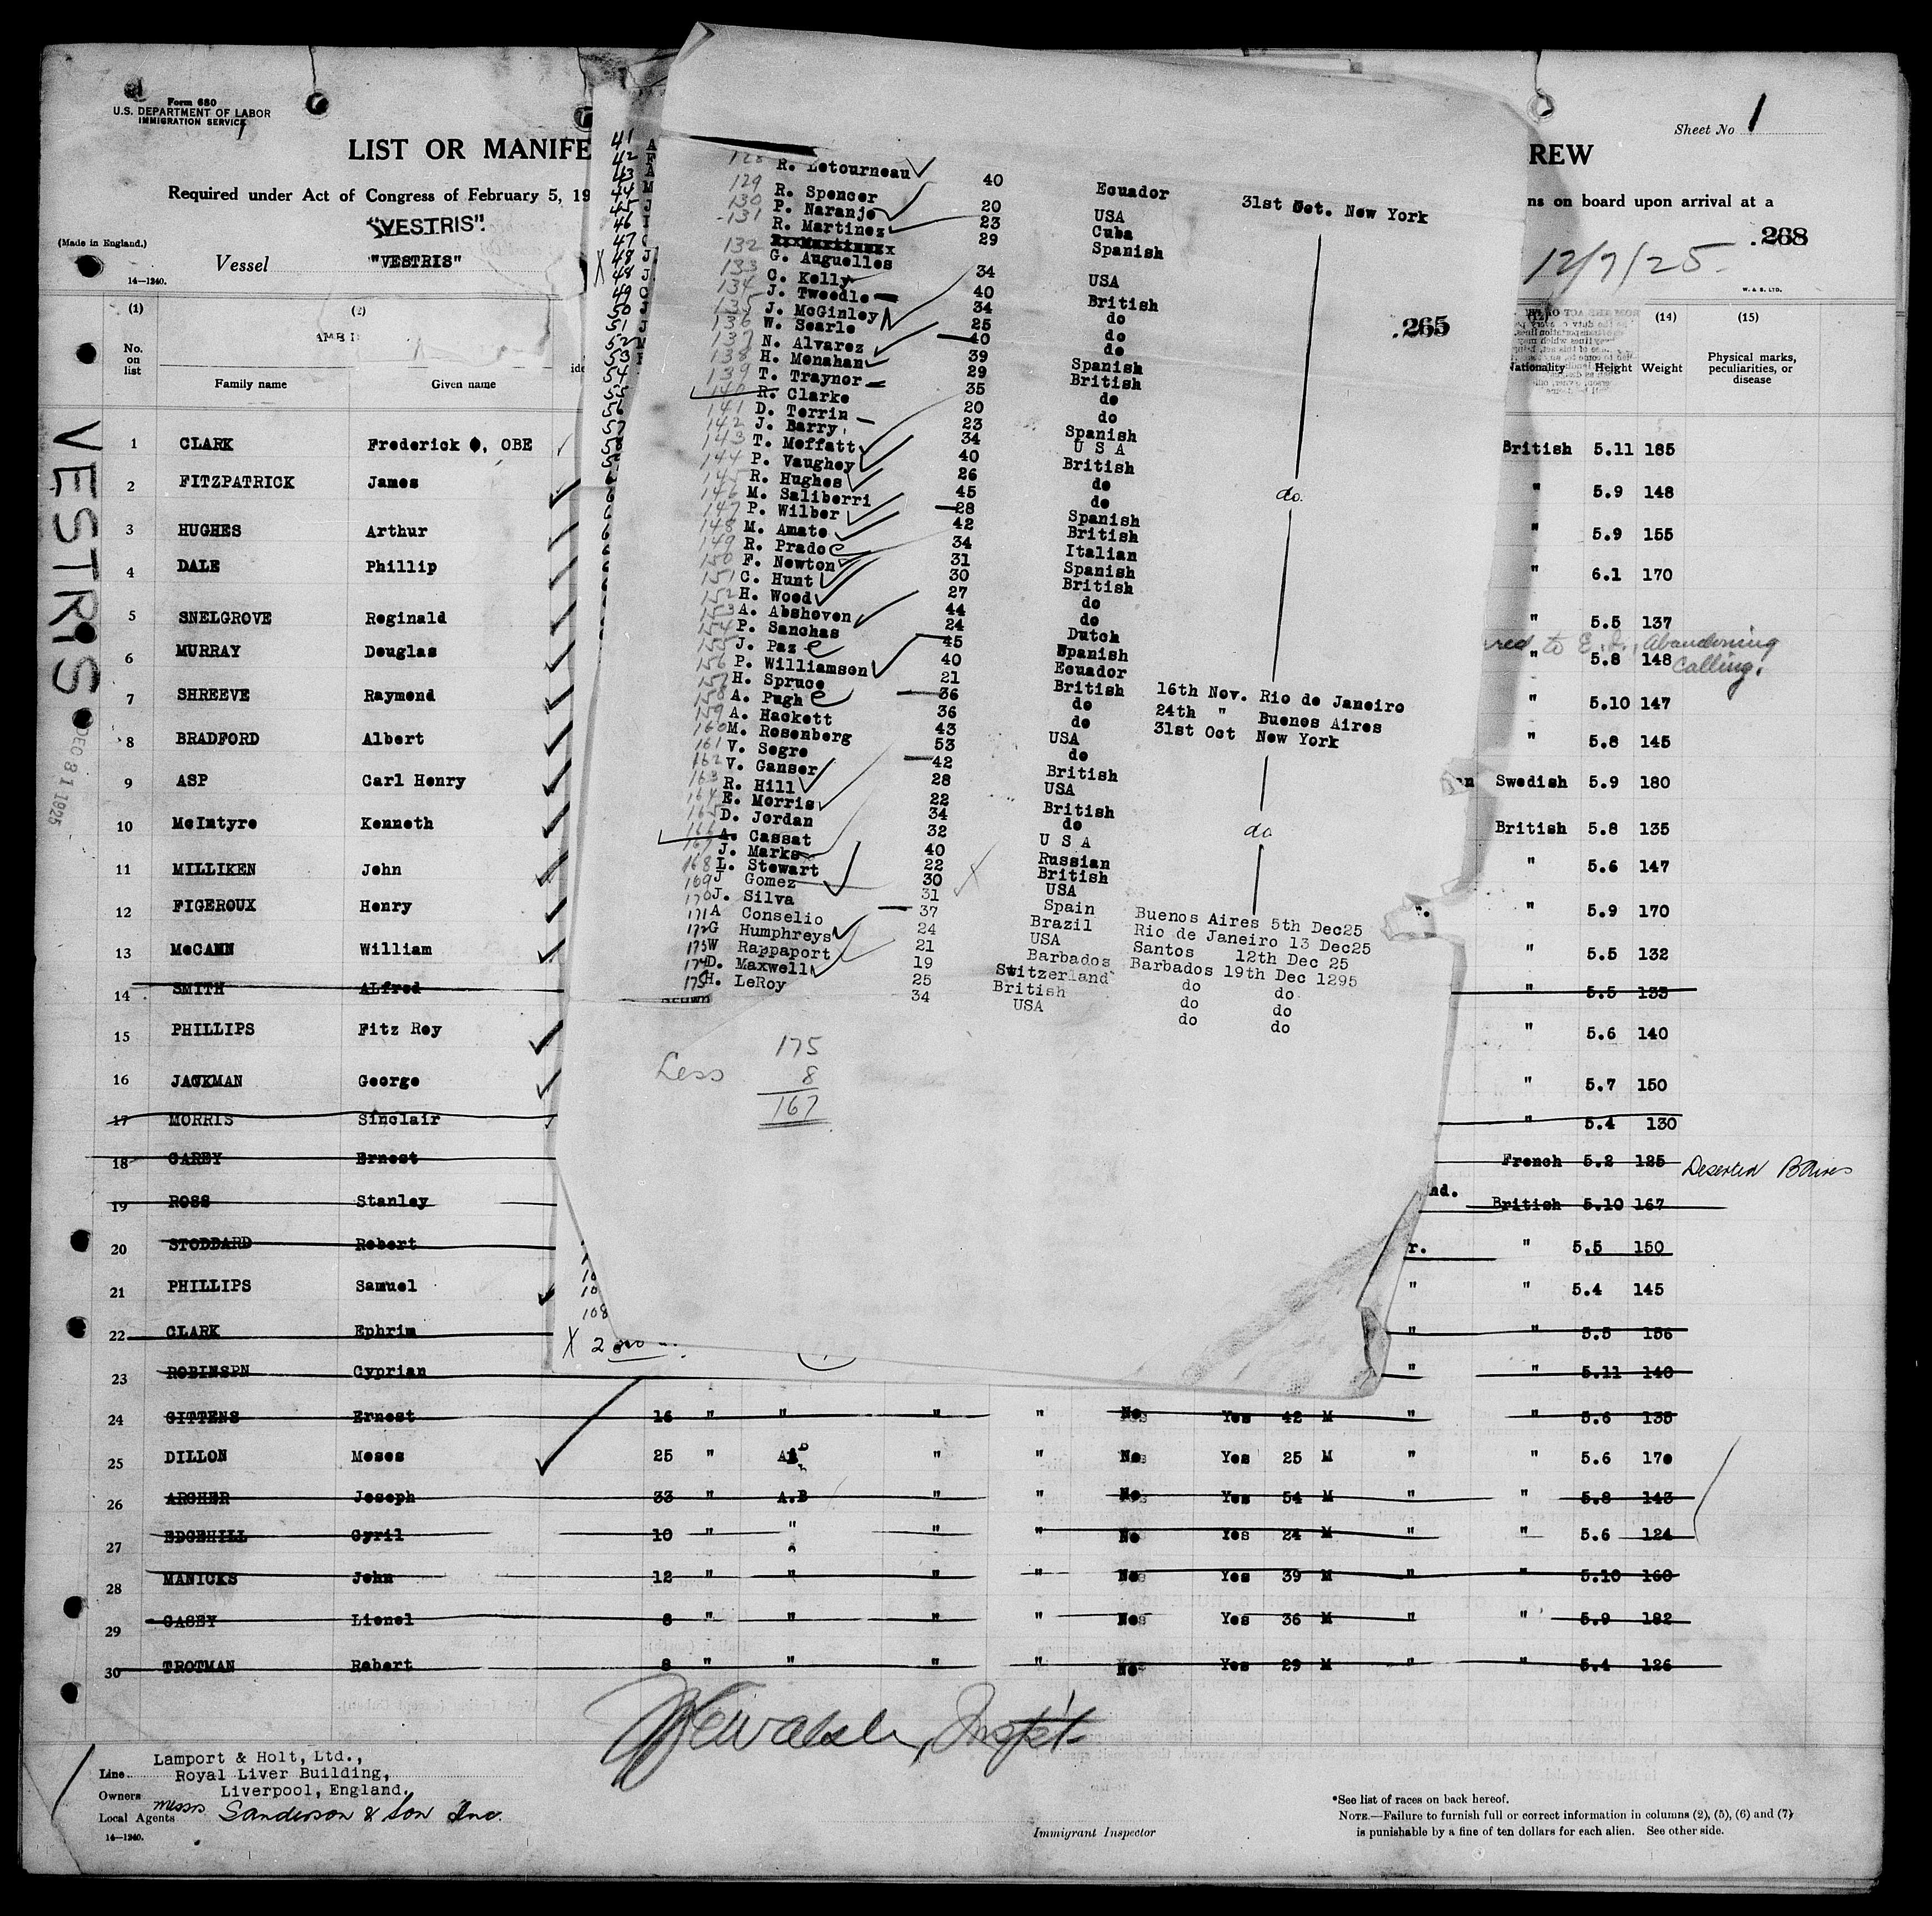 Form 680
U.S. DEPARTMENT OF LABOR
IMMIGRATION SERVICE
1
Sheet No 1
LIST OR MANIFE
REW
Required under Act of Congress of February 5, 19
ns on board upon arrival at a
"VESTRIS".
(Made in England.)
Vessel "VESTRIS"
14—1240.
12/7/25.
.268
W. & S. LTD.
(1) (2) (14) (15)
No. on list
Family name Given name
Nationality Height Weight Physical marks, peculiarities, or disease
VESTRIS
DEC 31 1925
1 CLARK Frederick , OBE British 5.11 185
2 FITZPATRICK James " 5.9 148
3 HUGHES Arthur " 5.9 155
4 DALE Phillip " 6.1 170
5 SNELGROVE Reginald " 5.5 137
6 MURRAY Douglas " 5.8 148 red to E. I., Abandoning Calling.
7 SHREEVE Raymond " 5.10 147
8 BRADFORD Albert " 5.8 145
9 ASP Carl Henry Swedish 5.9 180
10 McIntyre Kenneth British 5.8 135
11 MILLIKEN John " 5.6 147
12 FIGEROUX Henry " 5.9 170
13 McCANN William " 5.5 132
14 SMITH ALfred " 5.5 135
15 PHILLIPS Fitz Roy " 5.6 140
16 JACKMAN George " 5.7 150
17 MORRIS Sinclair " 5.4 130
18 CAREY Ernest French 5.2 125 Deserted BAires
19 ROSS Stanley nd. British 5.10 167
20 STODDARD Robert r. " 5.5 150
21 PHILLIPS Samuel " " 5.4 145
22 CLARK Ephrim " " 5.5 156
23 ROBINSPN Cyprian " " 5.11 140
24 GITTENS Ernest 16 " " " " No Yes 42 M " " 5.6 135
25 DILLON Moses 25 " AB " " No Yes 25 M " " 5.6 170
26 ARCHER Joseph 33 " A.B " " No Yes 54 M " " 5.8 143
27 EDGEHILL Cyril 10 " " " No Yes 24 M " " 5.6 124
28 MANICKS John 12 " " " " No Yes 39 M " " 5.10 160
29 CASEY Lionel 8 " " " " No Yes 36 M " " 5.9 182
30 TROTMAN Robert 8 " " " " No Yes 29 M " " 5.4 126
Line Lamport & Holt, Ltd.,
Royal Liver Building,
Owners Liverpool, England.
Local Agents Messrs Sanderson & Son Inc.
14—1240.
Immigrant Inspector
*See list of races on back hereof.
NOTE.—Failure to furnish full or correct information in columns (2), (5), (6) and (7)
is punishable by a fine of ten dollars for each alien. See other side.
41
42
43
44
45
46
47
X 48
48
49
50
51
52
53
54
55
56
57
58
108
X 2
.265
128 R. Letourneau 40 Ecuador 31st Oct. New York
129 R. Spencer 20 USA
130 P. Naranjo 23 Cuba
131 R. Martinez 29 Spanish
132 G. Auguelles 34 USA
133 C. Kelly 40 British
134 J. Tweedle 34 do
135 J. McGinley 25 do
136 W. Searle 40 do
137 N. Alvarez 39 Spanish
138 H. Monahan 29 British
139 T. Traynor 35 do
140 R. Clarke 20 do
141 D. Terrin 23 Spanish
142 J. Barry 34 U S A
143 T. Moffatt 40 British
144 P. Vaughey 26 do
145 R. Hughes 45 do
146 M. Saliberri 28 Spanish
147 P. Wilber 42 British
148 M. Amato 34 Italian
149 R. Prado 31 Spanish
150 F. Newton 30 British
151 C. Hunt 27 do
152 H. Wood 44 do
153 A. Abshoven 24 Dutch
154 P. Sanchas 45 Spanish
155 J. Paz 40 Ecuador
156 P. Williamson 21 British 16th Nov. Rio de Janeiro
157 H. Spruce 36 do 24th " Buenos Aires
158 A. Pugh 36 do 31st Oct New York
159 A. Hackett 43 USA
160 M. Rosenberg 53 do
161 V. Segre 42 British
162 V. Ganser 28 USA
163 R. Hill 22 British
164 E. Morris 34 do
165 D. Jordan 32 U S A
166 A. Cassat 40 Russian
167 J. Marks 22 British
168 L. Stewart 30 USA
169 J Gomez 31 Spain Buenos Aires 5th Dec25
170 J. Silva 37 Brazil Rio de Janeiro 13 Dec25
171 A Conselio 24 USA Santos 12th Dec 25
172 G Humphreys 21 Barbados Barbados 19th Dec 1295
173 W Rappaport 19 Switzerland do do
174 D. Maxwell 25 British do do
175 H. LeRoy 34 USA do do
do.
do
175
Less 8
167